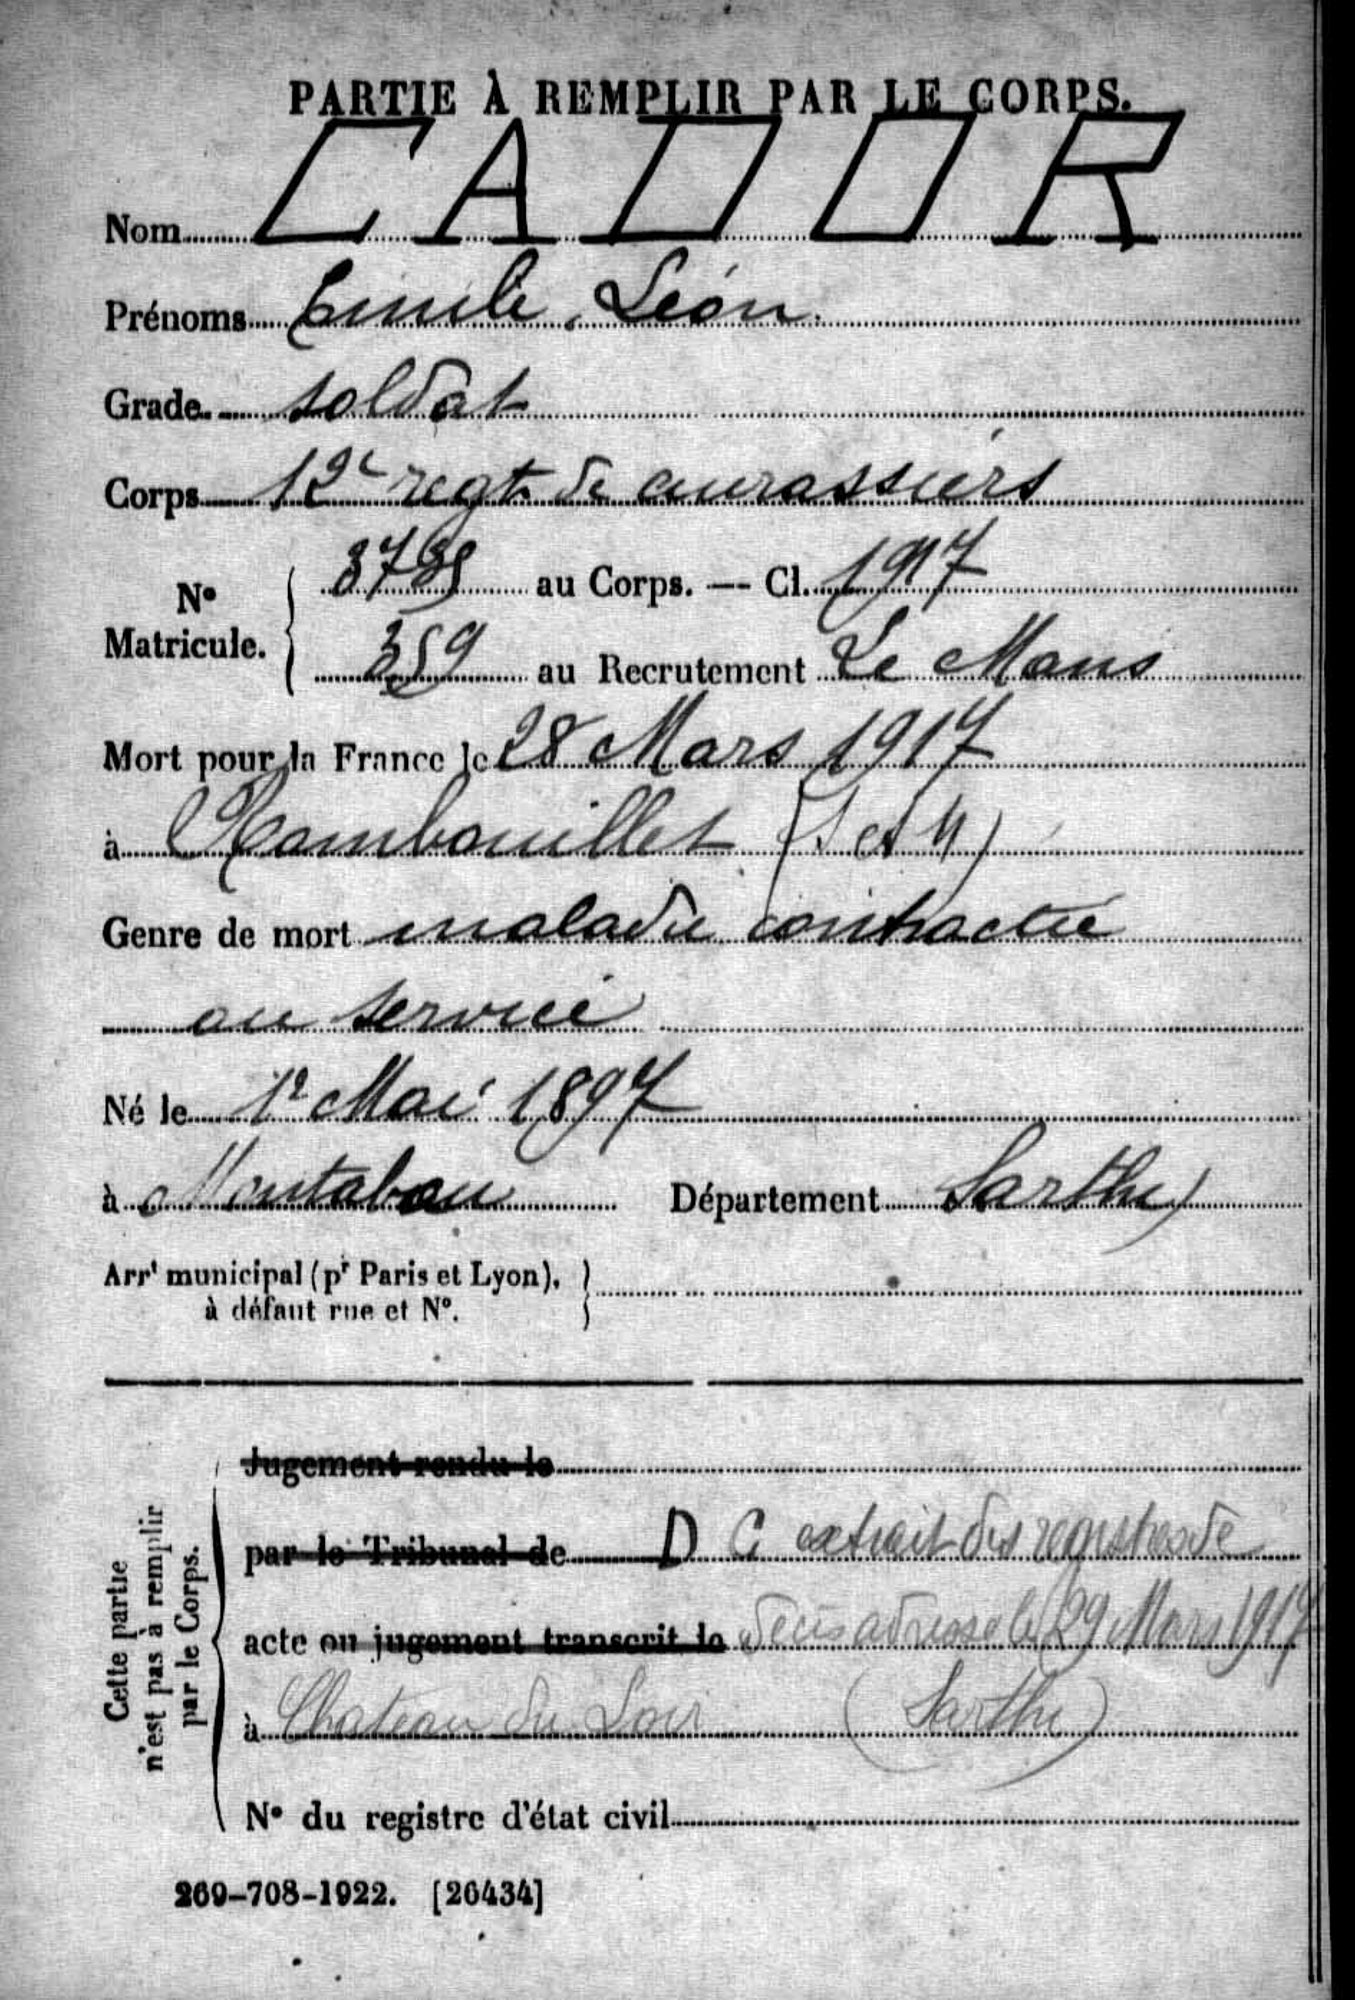 PARTIE À REMPLIR PAR LE CORPS.
Nom CADOR
Prénoms Emile, Léon
Grade soldat
Corps 12e regt de cuirassiers
No Matricule. 3735 au Corps. — Cl. 1917
359 au Recrutement Le Mans
Mort pour la France le 28 Mars 1917
à Rambouillet (S et
Genre de mort maladie contractée
au service
Né le 1er Mai 1897
à Département Sarthe
Arrt municipal (pr Paris et Lyon),
à défaut rue et No.
Cette partie
n'est pas à remplir
par le Corps.
Jugement rendu le
par le Tribunal de D C extrait des registres de
acte ou jugement transcrit le décès adressé le 29 Mars 1917
à Chateau du Loir (Sarthe)
No du registre d'état civil
269-708-1922. [26434]